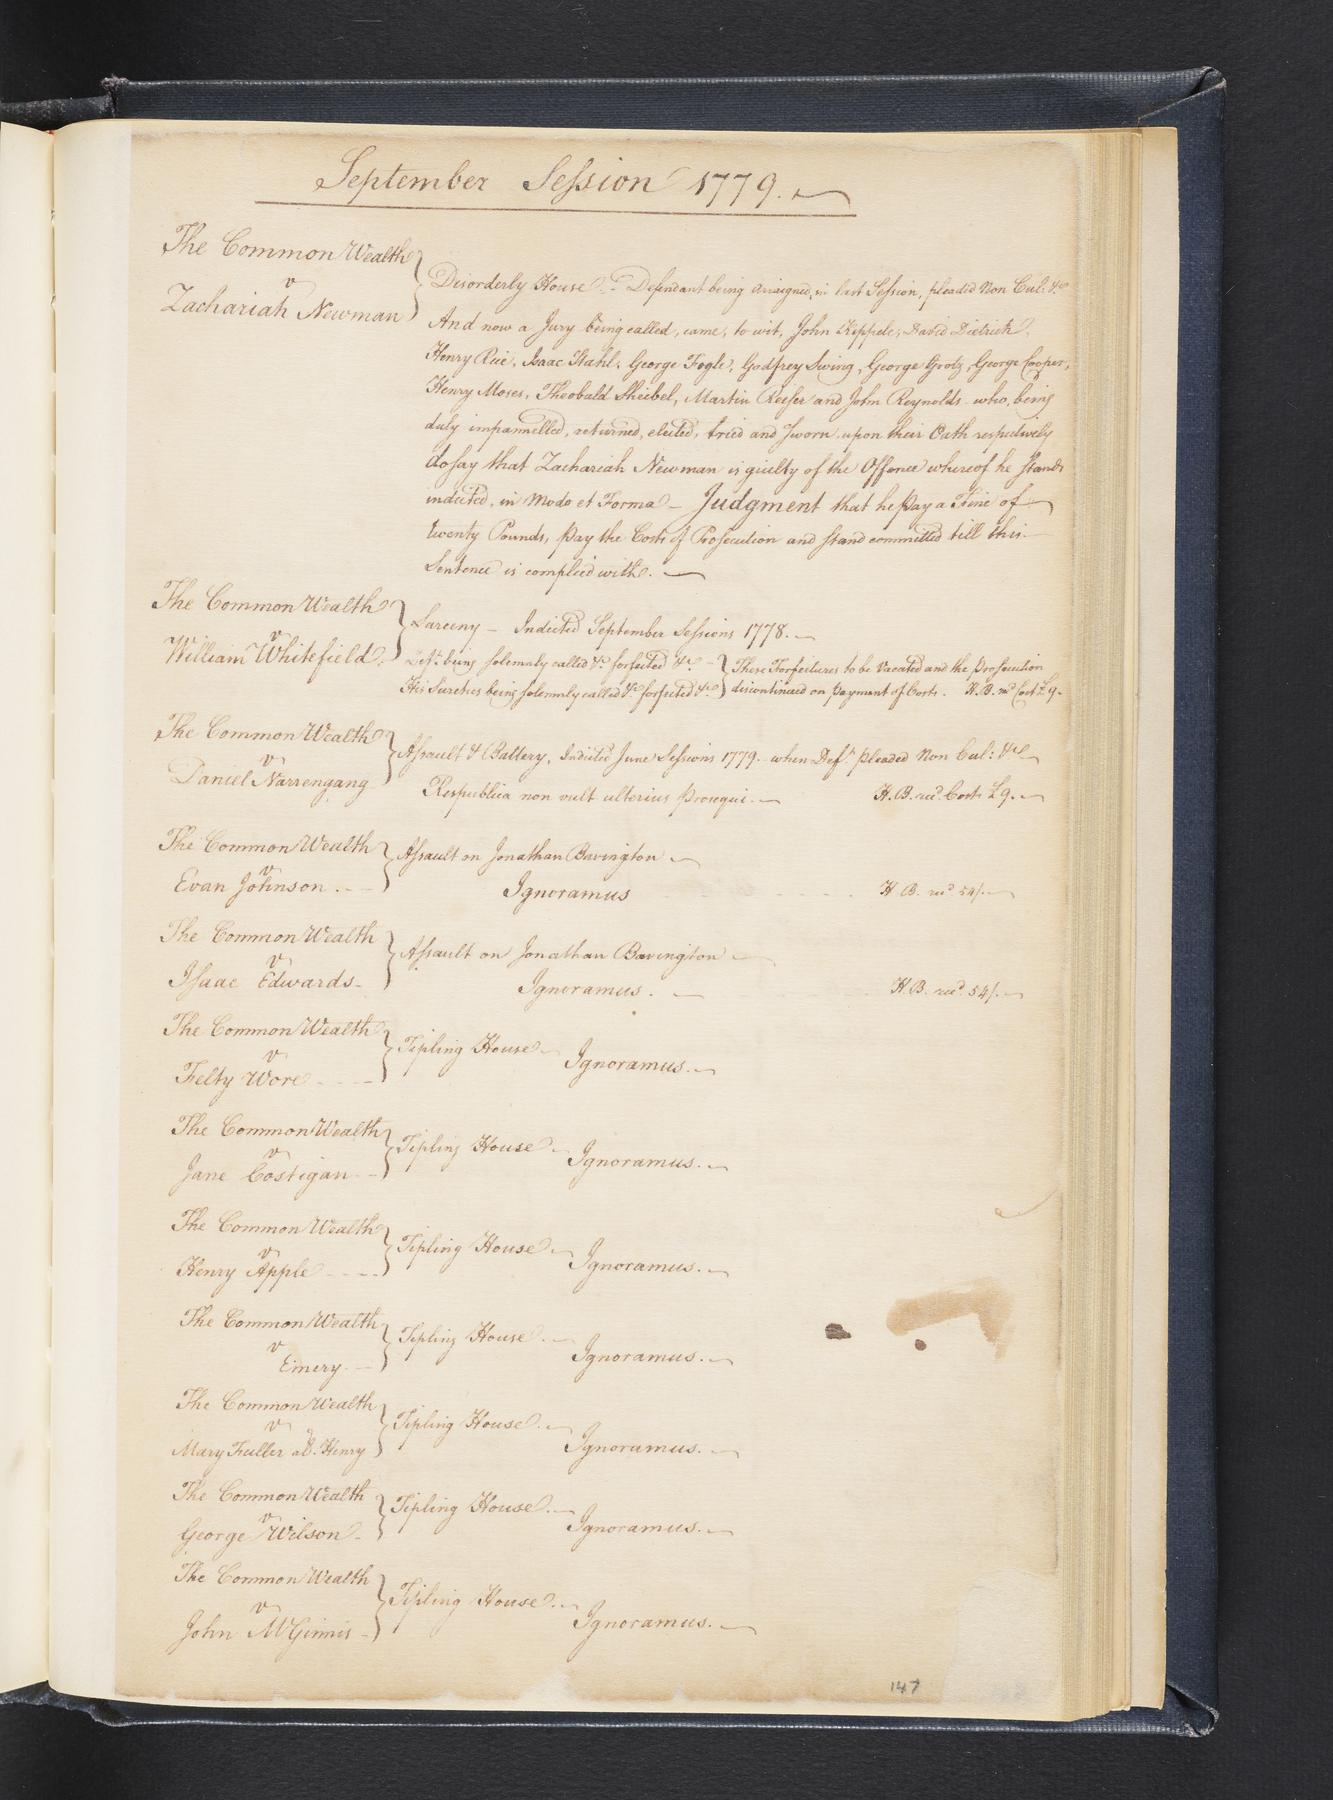 September Session 1779.
The Common Wealth
v
Zachariah Newman
Disorderly House. Defendant being arraigned, in last Session, pleaded Non Cul: &c
And now a Jury being called, came, to wit, John Keppele, David Dietrick,
Henry Rice, Isaac Stahl, George Fogle, Godfrey Swing, George Grotz, George Cooper,
Henry Moses, Theobald Sheibel, Martin Reeser and John Reynolds who, being
duly impannelled, returned, elected, tried and sworn upon their Oath respectively
do say that Zachariah Newman is guilty of the Offence whereof he stands
indicted, in Modo et Forma - Judgment that he pay a Fine of
twenty Pounds, pay the Costs of Prosecution and stand committed till this
Sentence is complied with.
The Common Wealth
v
William Whitefield
Larceny - Indicted September Sessions 1778.
Deft. being solemnly called &c. forfeited &c. -
His Sureties being solemnly called &c. forfeited &c.
These Forfeitures to be Vacated and the Prosecution
discontinued on Payment of Costs. H. B. recd Cost £9.
The Common Wealth
v
Daniel Narrengang
Assault & Battery, Indicted June Sessions 1779. when Deft. pleaded Non Cul: &c
Respublica non vult ulterius prosequi.
H. B. recd. Costs £9.
The Common Wealth
v
Evan Johnson
Assault on Jonathan Bavington
Ignoramus
H. B. recd 54/.
The Common Wealth
v
Isaac Edwards
Assault on Jonathan Bavington
Ignoramus.
H. B. recd. 54/.
The Common Wealth
v
Felty Wore
Tipling House Ignoramus.
The Common Wealth
v
Jane Costigan
Tipling House Ignoramus.
The Common Wealth
v
Henry Apple
Tipling House Ignoramus.
The Common Wealth
v
Emery
Tipling House. Ignoramus.
The Common Wealth
v
Mary Fuller als. Henry
Tipling House. Ignoramus.
The Common Wealth
v
George Wilson
Tipling House. Ignoramus.
The Common Wealth
v
John McGinnis
Tipling House. Ignoramus.
147